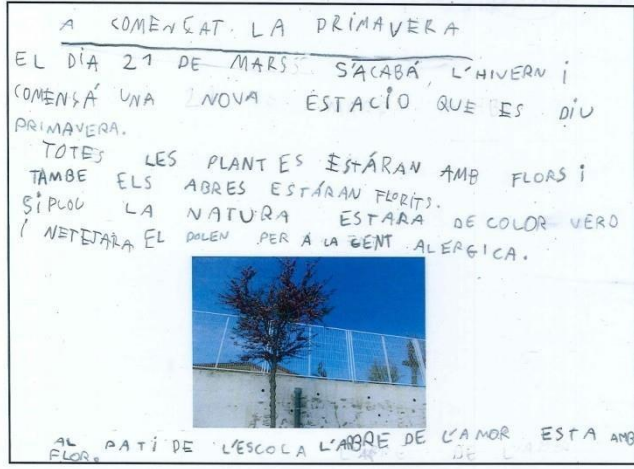 A COMENÇAT. LA PRIMAVERA
EL DÍA 21 DE MARS S'ACABÁ L'HIVERN i
COMENSÁ UNA NOVA ESTACIO QUE ES DIU
PRIMAVERA.
TOTES LES PLANTES ESTÁRAN AMB FLORS i
TAMBE ELS ABRES ESTÁRAN FLORITS.
SiPLOU LA NATURA ESTARA DE COLOR VERD
i NETEJARA EL POLEN PER A LA GENT ALERGICA.
AL PATi DE L'ESCOLA L'ARBRE DE L'AMOR ESTA AMB
FLOR.